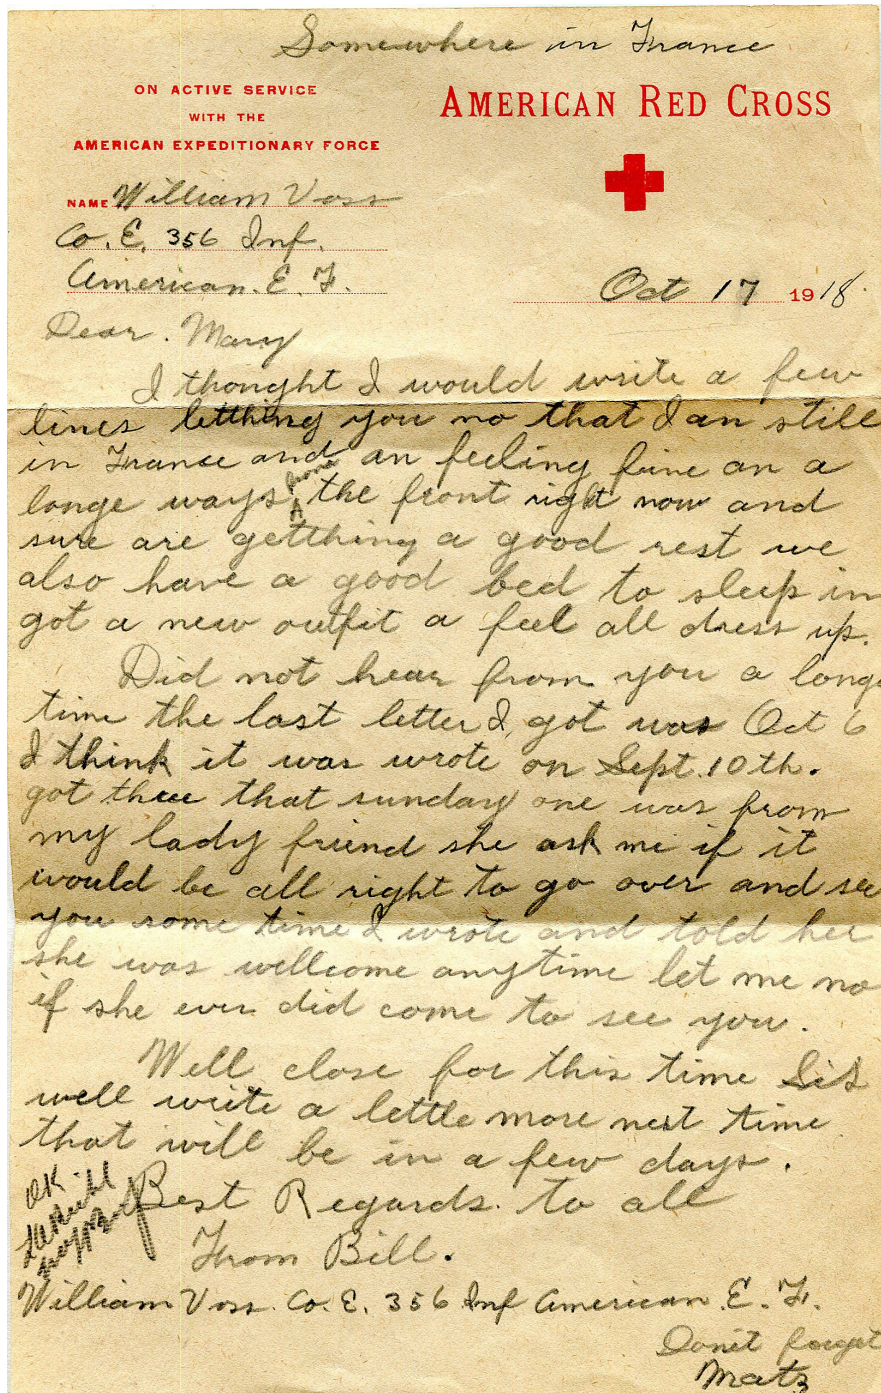 Somewhere in France
ON ACTIVE SERVICE
WITH THE
AMERICAN EXPEDITIONARY FORCE
AMERICAN RED CROSS
NAME William Voss
Co. E. 356 Inf.
American. E. F.
Oct 17 1918.
Dear. Mary
I thought I would write a few
lines letthing you no that I an still
in France and an feeling fine an a
longe ways from the front right now and
sure are getthing a good rest we
also have a good bed to sleep in
got a new outfit a feel all dress up.
Did not hear from you a longe
time the last letter I got was Oct 6
I think it was wrote on Sept. 10th.
got three that sunday one was from
my lady friend she ask me if it
would be all right to go over and see
you some time I wrote and told her
she was wellcome anytime let me no
if she ever did come to see you.
Well close for this time Sis
well write a lettle more next time
that will be in a few days.
OK
Best Regards. to all
From Bill.
William Voss. Co. E. 356 Inf American. E. F.
Donit forget
Matz